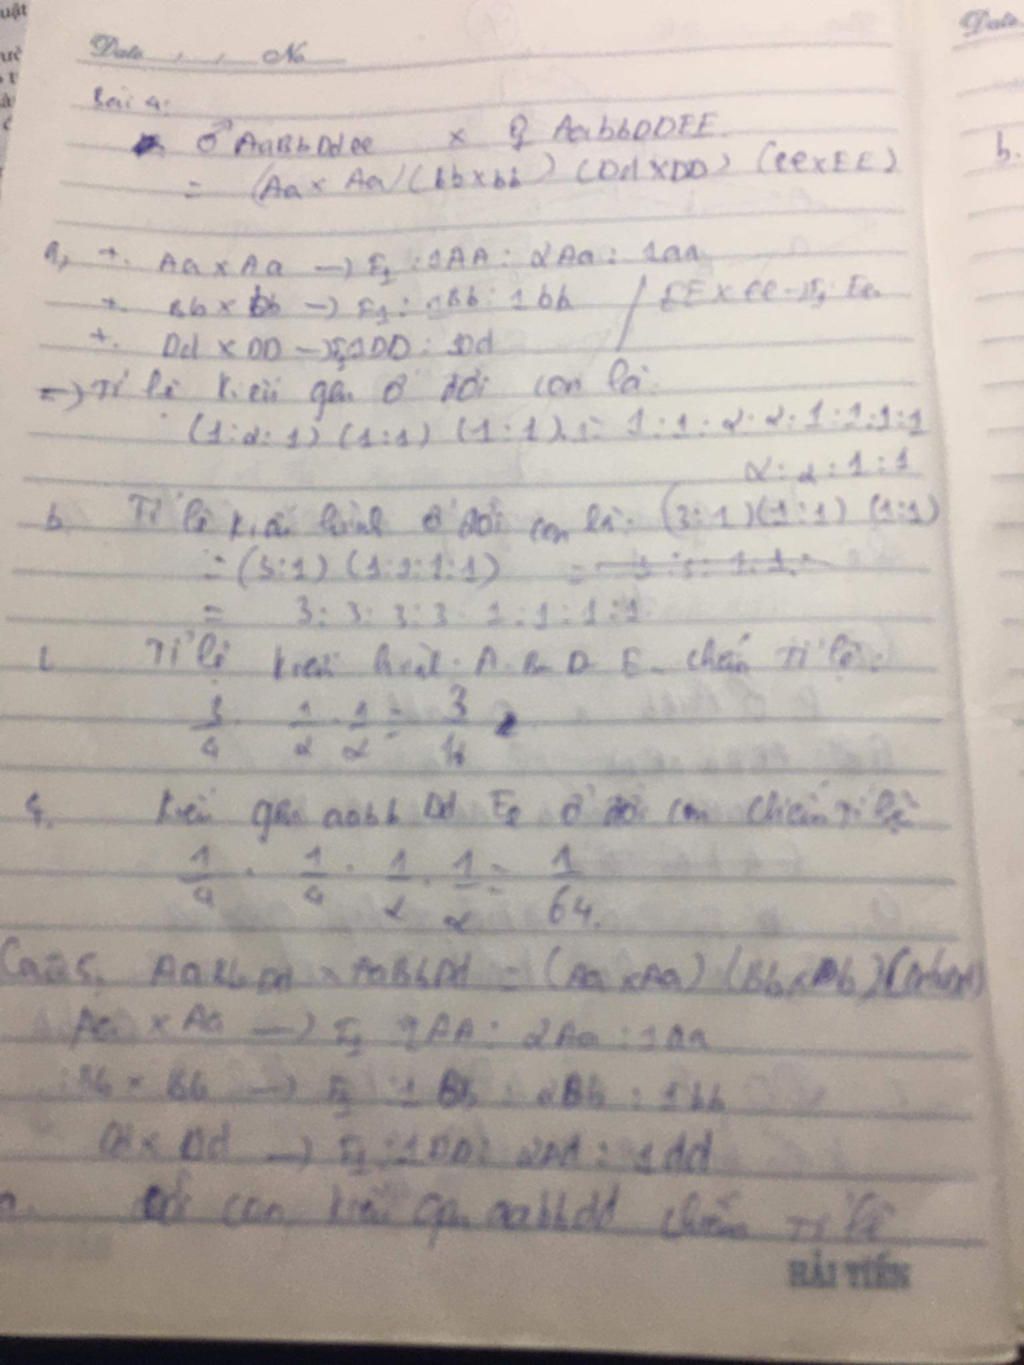 Date , , No
Bài 4:
♂ AaBbDdee x ♀ AabbDDEE.
= (Aa x Aa) (Bb x bb) (Dd x DD) (ee x EE)
a, +. Aa x Aa → F1 : 1AA : 2Aa : 1aa
+. Bb x bb → F1 : 1Bb : 1bb / EE x ee → F1 Ee
+. Dd x DD → F1 1DD : 1Dd
=> Tỉ lệ kiểu gen ở đời con là:
(1:2:1) (1:1) (1:1).1 = 1:1:2:2:1:1:1:1
2:2:1:1
b Tỉ lệ kiểu hình ở đời con là: (3:1)(1:1) (1:1)
= (3:1) (1:1:1:1) =
= 3:3:3:3:1:1:1:1
Tỉ lệ kiểu hình A-B-D-E- chiếm tỉ lệ:
3/4 . 1/2 . 1/2 = 3/16
Kiểu gen aabb Dd Ee ở đời con chiếm tỉ lệ
1/4 . 1/4 . 1/2 . 1/2 = 1/64.
Câu 5. AaBbDd x AaBbDd = (Aa x Aa) (Bb x Bb) (Dd x Dd)
Aa x Aa → F1 1AA : 2Aa : 1aa
Bb x Bb → F1 : 1BB : 2Bb : 1bb
Dd x Dd → F1 : 1DD : 2Dd : 1dd
a. Đời con kiểu gen aabbdd chiếm tỉ lệ
HẢI TIẾN
b.
Date